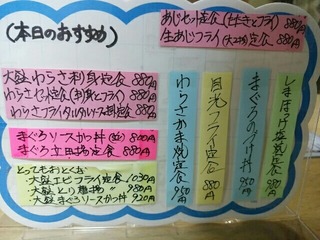 (本日のおすすめ)
あじセット定食(たたきとフライ) 880円
生あじフライ(大2枚)定食 880円
大盛わらさ刺身定食 880円
わらさセット定食(刺身とフライ) 880円
わらさフライタルタルソース掛定食 880円
まぐろソースかつ丼 800円
まぐろ立田揚定食 880円
とってもおとくな
・大盛エビフライ定食 1030円
・大盛とり唐揚 〃 980円
・大盛まぐろソースかつ丼 920円
わらさかま焼定食 950円
目光フライ定食 880円
まぐろのづけ丼 950円
しまほっけ塩焼定食 880円